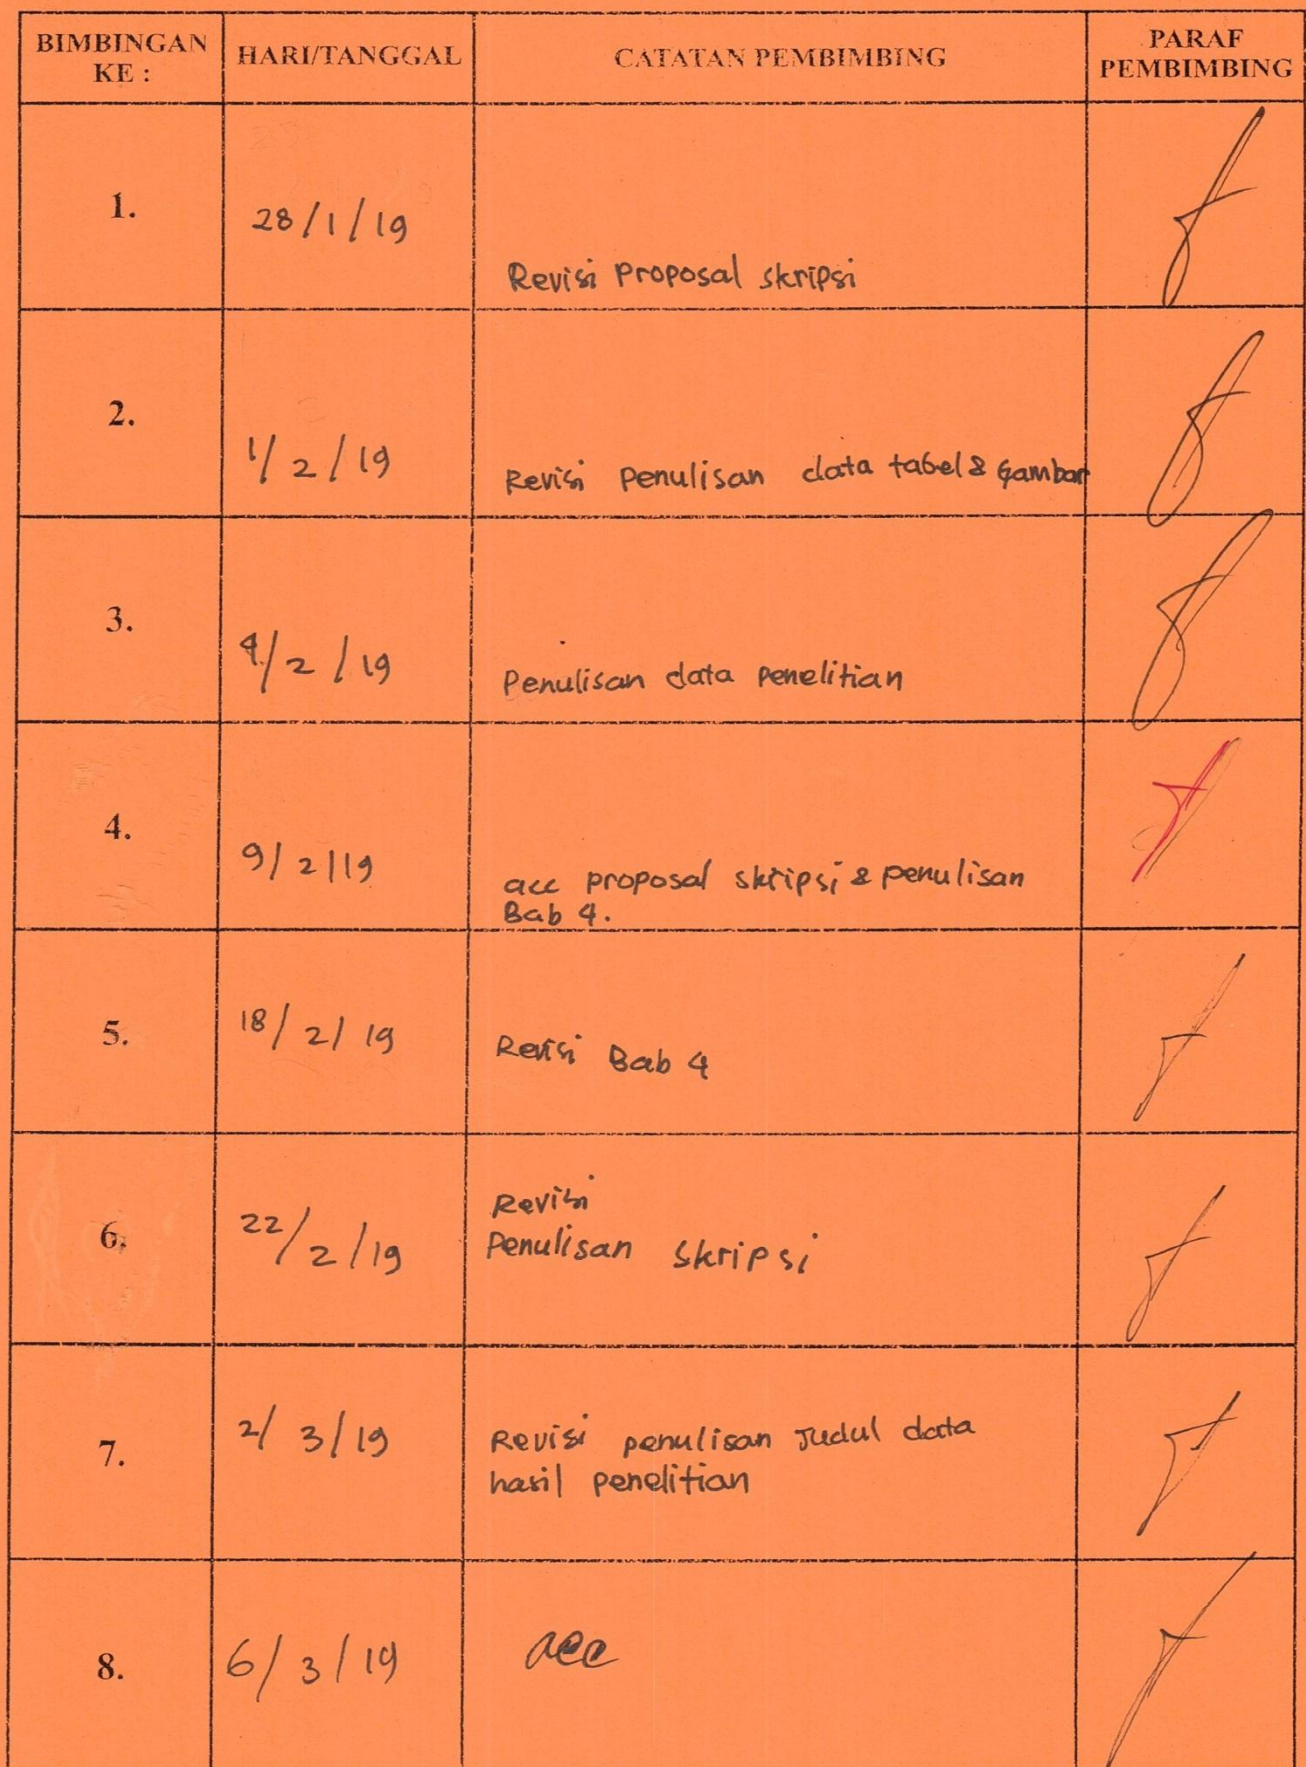 BIMBINGAN KE : HARI/TANGGAL CATATAN PEMBIMBING PARAF PEMBIMBING
1. 28/1/19 Revisi Proposal skripsi
2. 1/2/19 Revisi Penulisan data tabel & Gambar
3. 4/2/19 Penulisan data penelitian
4. 9/2/19 acc proposal skripsi & penulisan
Bab 4.
5. 18/2/19 Revisi Bab 4
6. 22/2/19 Revisi
Penulisan skripsi
7. 2/3/19 Revisi penulisan Judul data
hasil penelitian
8. 6/3/19 acc